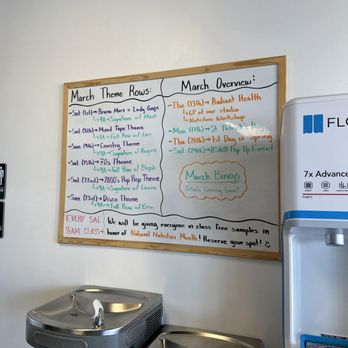 March Theme Rows:
Sat (1st) → Bruno Mars x Lady Gaga
↳ 9A → Signature w/ Mack
Sat (8th) → Mixed Tape Theme
↳ 9A → Full Row w/ Lori
Sun (9th) → Country Theme
↳ 9A → Signature w/ Regina
Sat (15th) → 70s Theme
↳ 9A → Full Row w/ Steph
Sat (22nd) → 2000's Hip Hop Theme
↳ 9A → Signature w/ Laura
Sun (23rd) → Disco Theme
↳ 9A → Full Row w/ Erin
March Overview:
Thu (13th) → Radiant Health
↳ 6P at our studio
↳ Nutrition Workshop
Mon (17th) → St. Patrick's Day
Thu (20th) → 1st Day of Spring
Sat (29th) → BSWELL Pop Up Event
March Bingo
Details Coming Soon!
EVERY SAT
9AM CLASS →
We will be giving everyone in class free samples in
honor of National Nutrition Month! Reserve your spot! :)
FLO
7x Advance